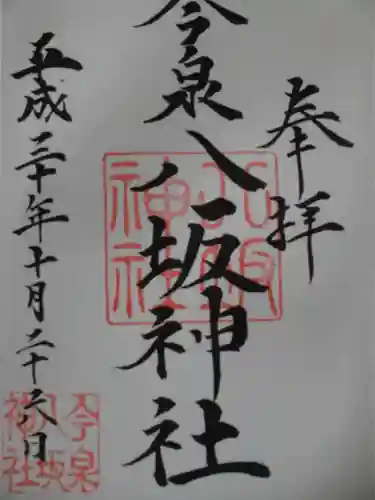 奉拝
今泉八坂神社
平成三十年十月二十六日
八坂神社
今泉八坂神社